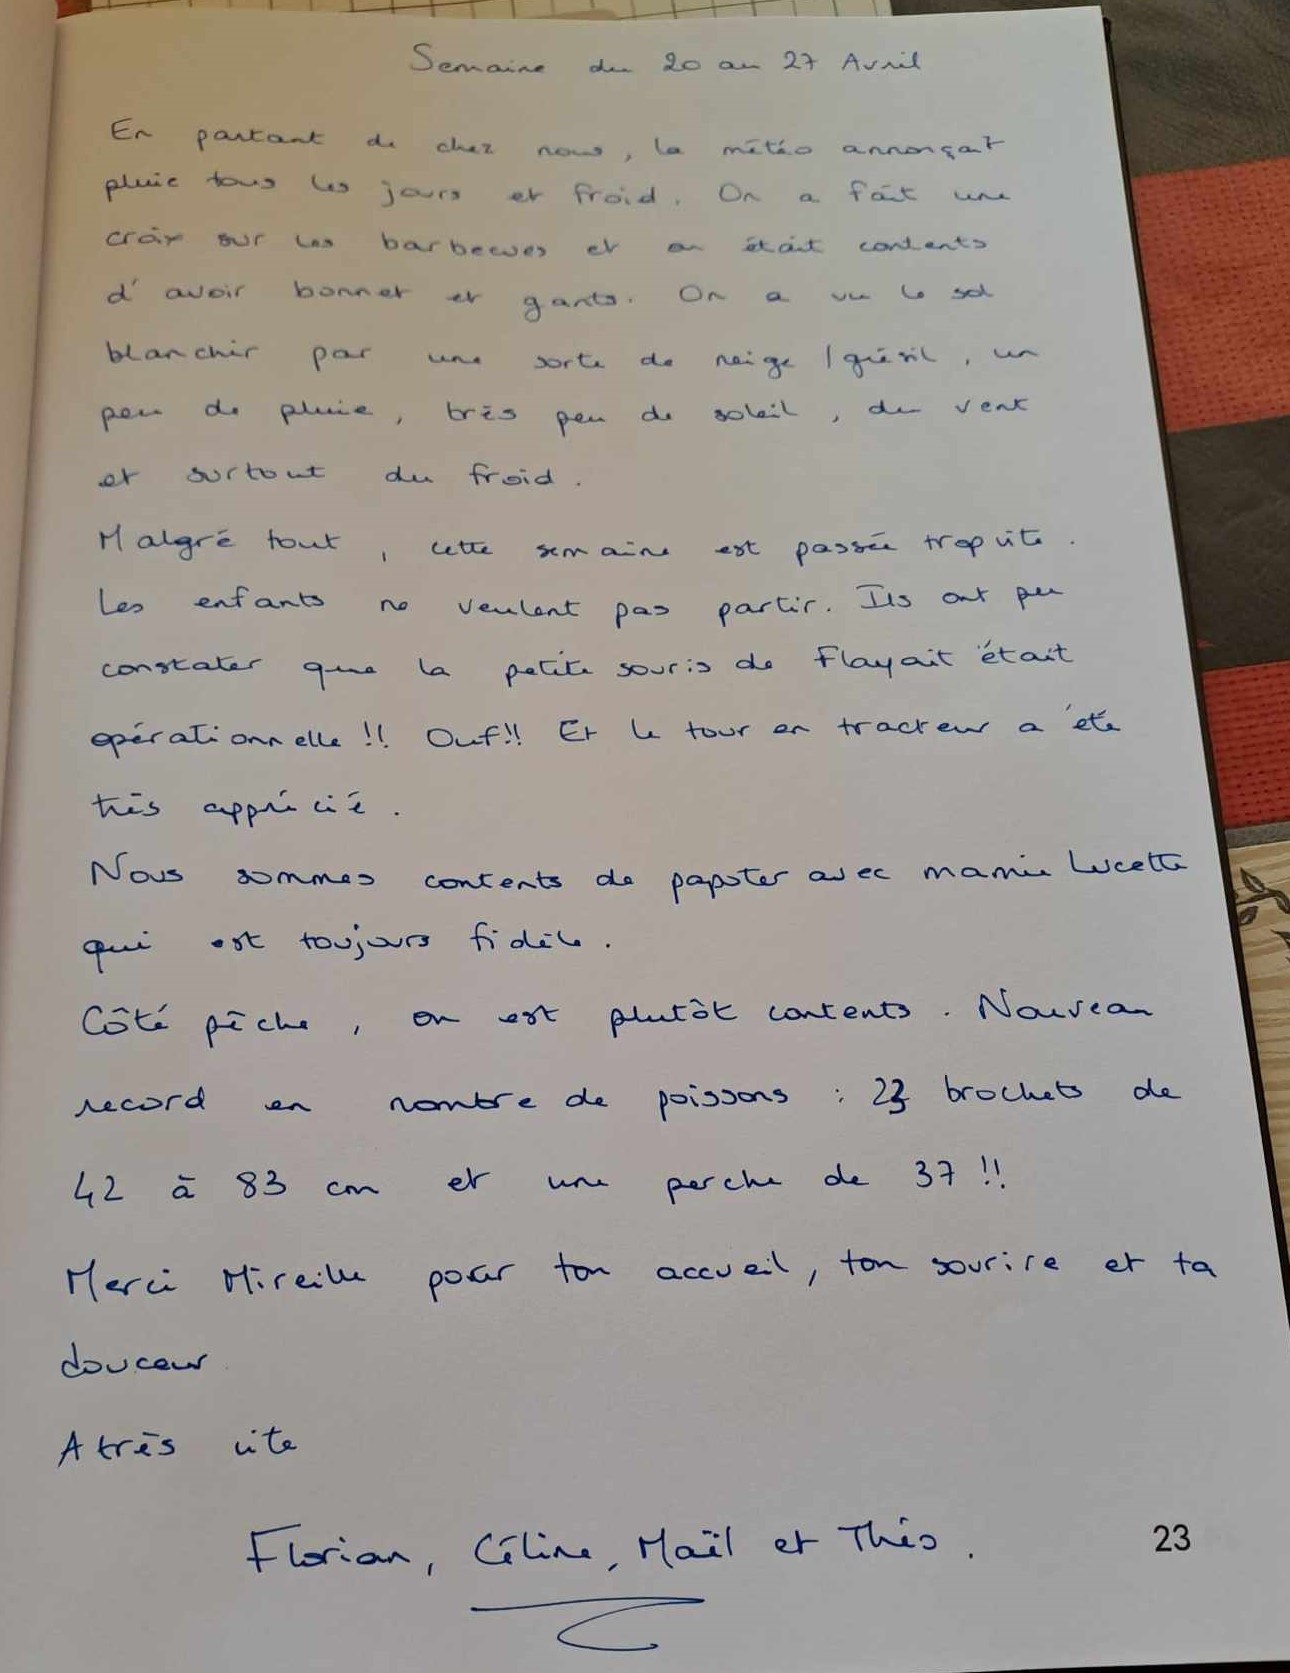 Semaine du 20 au 27 Avril
En partant de chez nous, la météo annonçait
pluie tous les jours et froid. On a fait une
croix sur les barbecues et on était contents
d'avoir bonnet et gants. On a vu le sol
blanchir par une sorte de neige / grésil, un
peu de pluie, très peu de soleil, du vent
et surtout du froid.
Malgré tout, cette semaine est passée trop vite.
Les enfants ne veulent pas partir. Ils ont pu
constater que la petite souris de Flayait était
opérationnelle !! Ouf!! Et le tour en tracteur a été
très apprécié.
Nous sommes contents de papoter avec mamie Lucette
qui est toujours fidèle.
Côté pêche, on est plutôt contents. Nouveau
record en nombre de poissons : 23 brochets de
42 à 83 cm et une perche de 37 !!
Merci Mireille pour ton accueil, ton sourire et ta
douceur
A très vite
Florian, Céline, Maël et Théo.
23